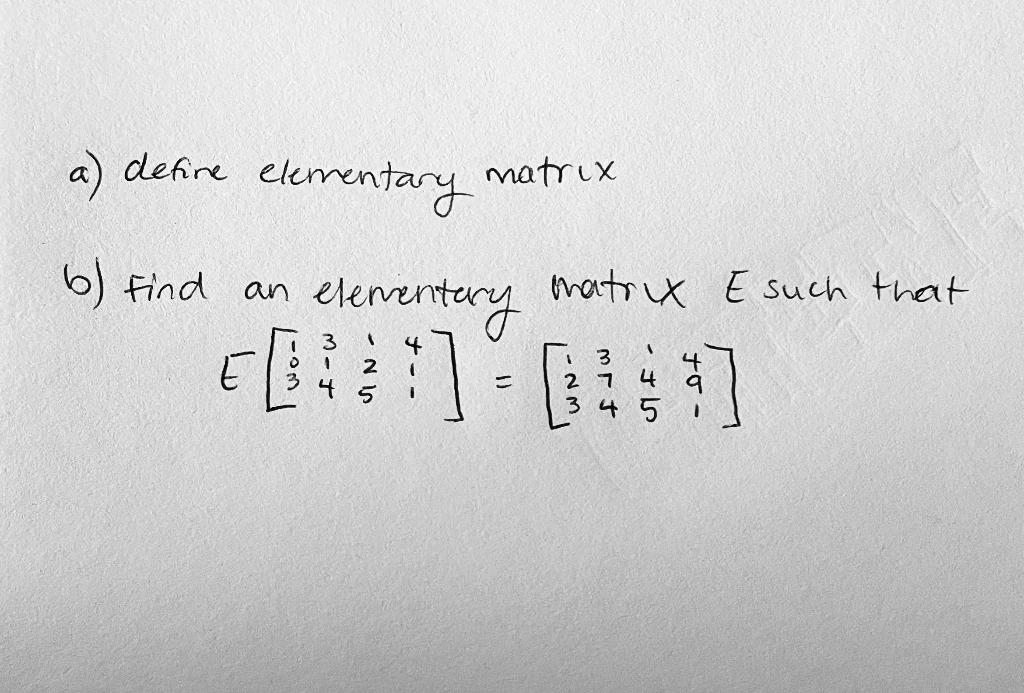 a) define elementary matrix
b) Find an elementary matrix E such that
E [ 1 3 1 4 ] = [ 1 3 1 4 ]
0 1 2 1 2 7 4 9
3 4 5 1 3 4 5 1